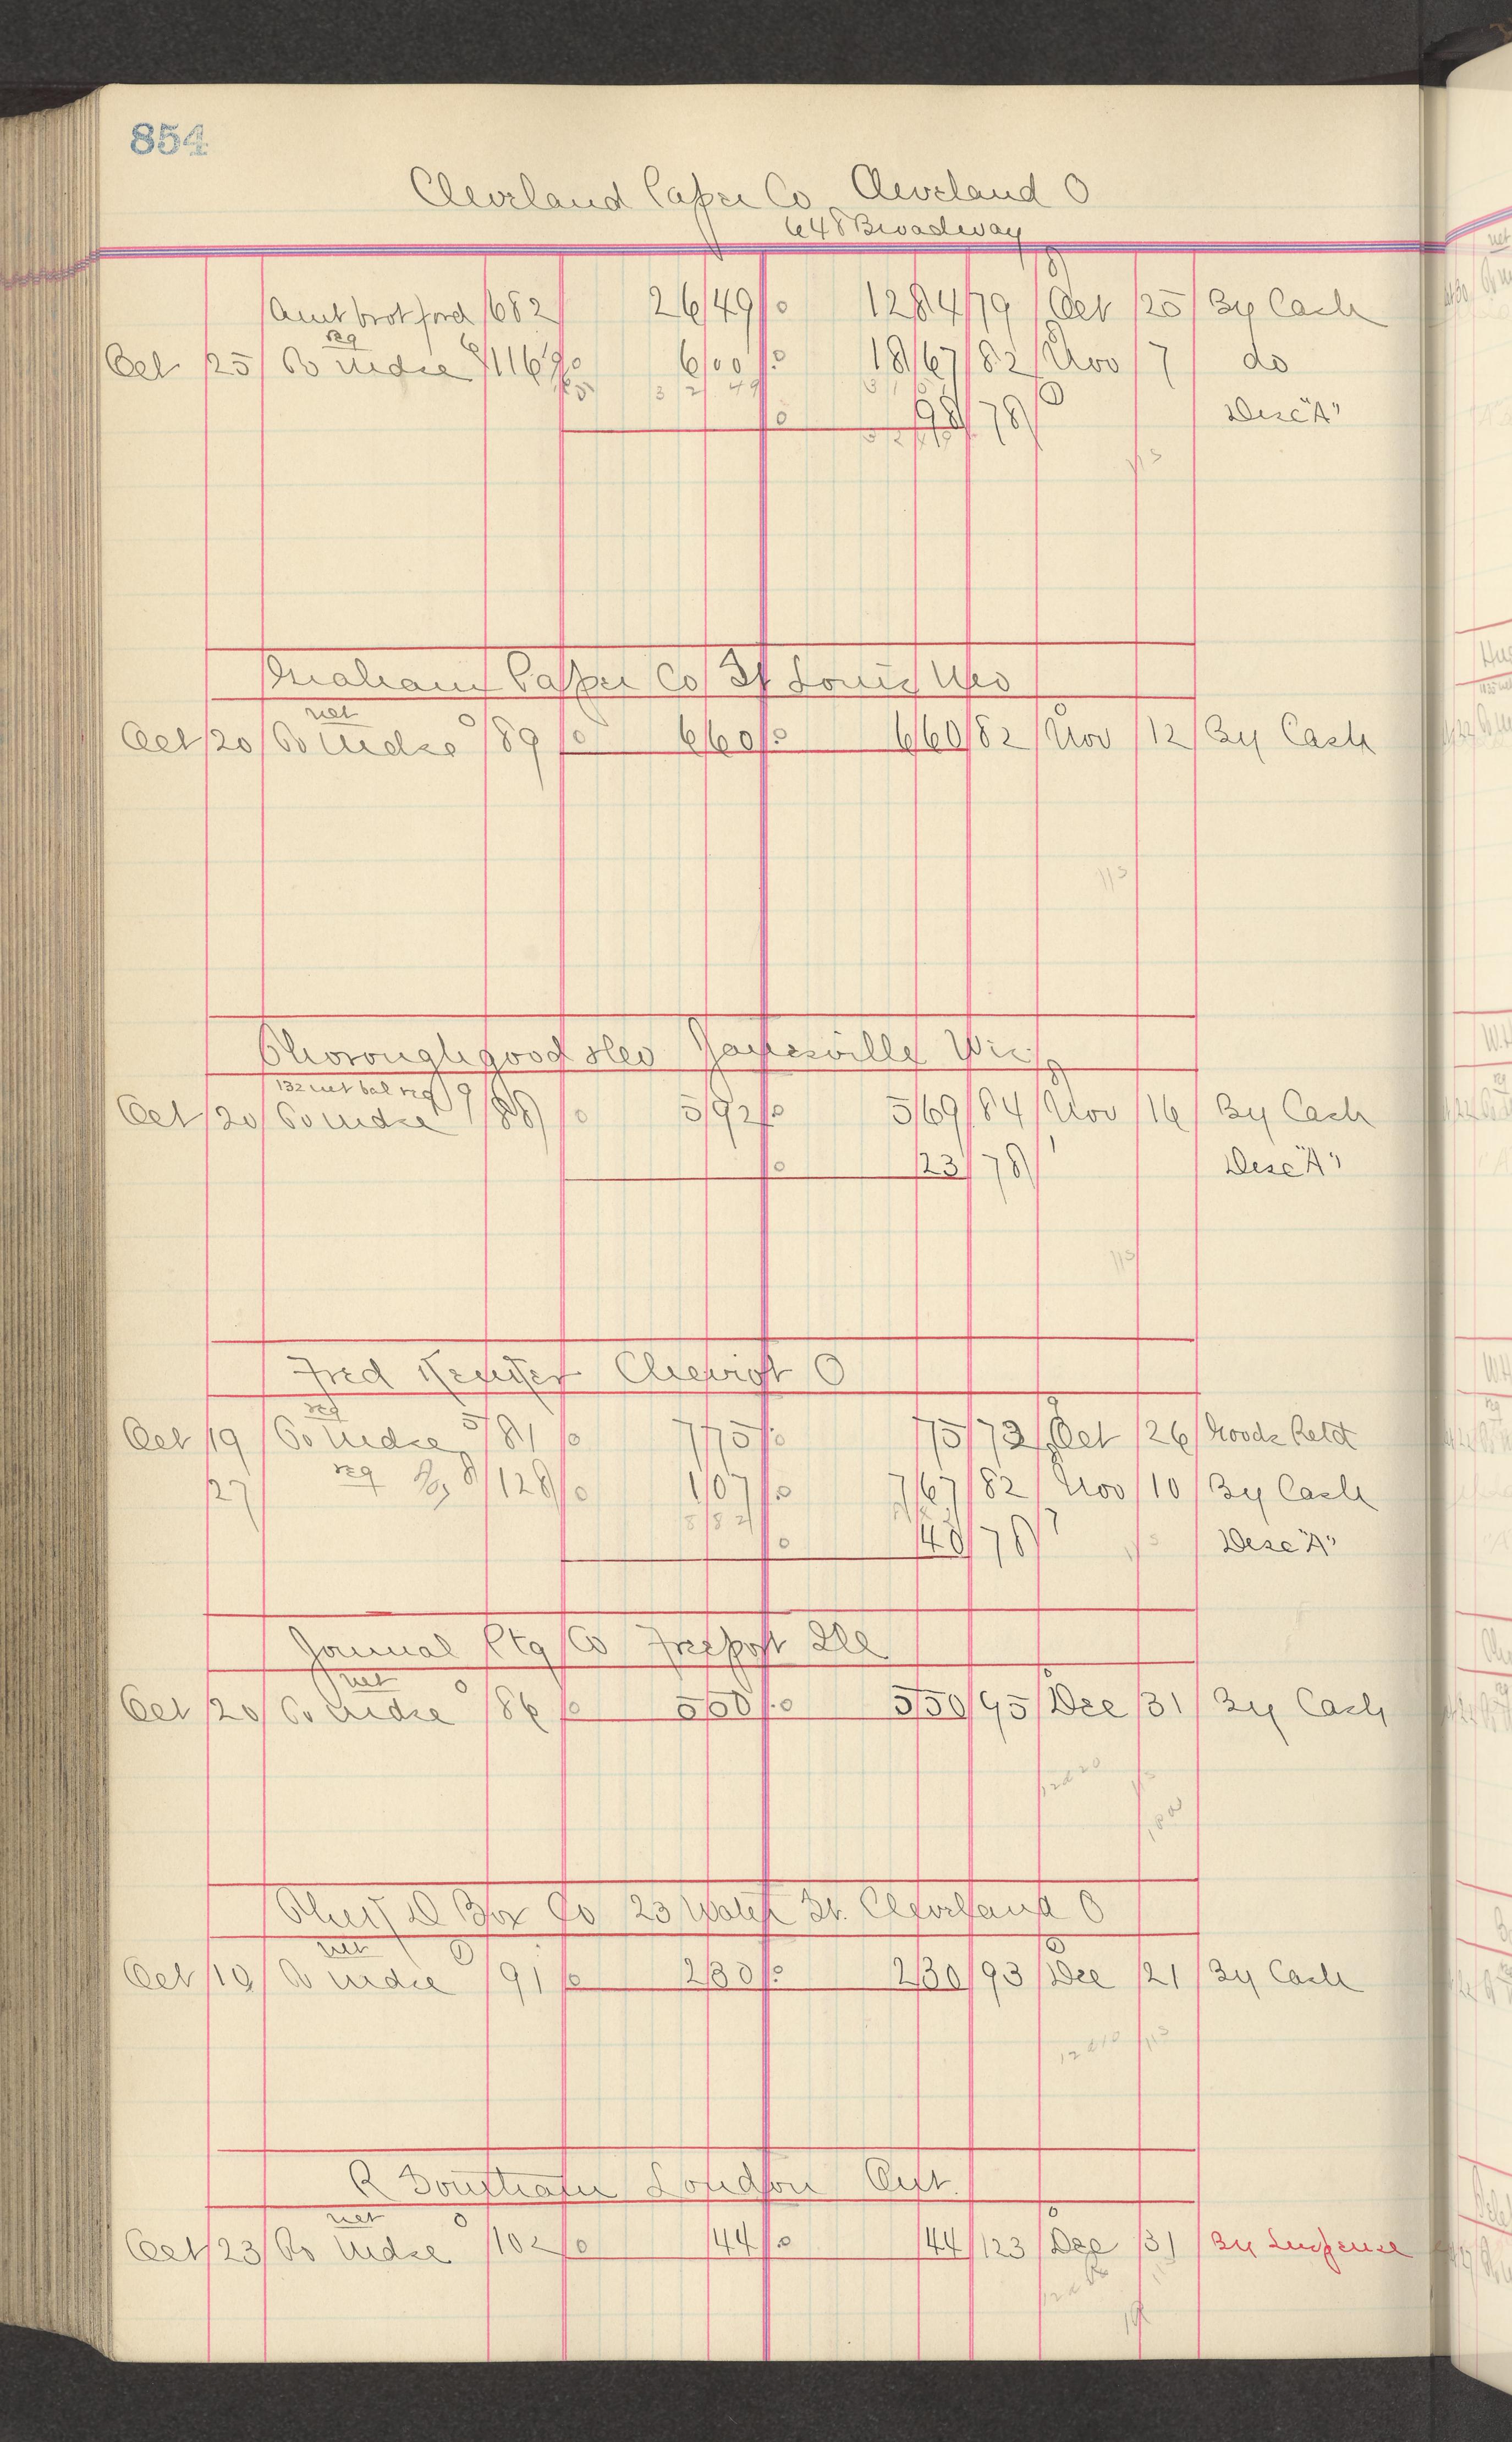 854
Cleveland Paper Co Cleveland O
648 Broadway
Amt brot ford 682 26 49 1284 79 Oct 25 By Cash
reg
Oct 25 To Mdse 6 116 6 00 18 67 82 Nov 7 do
32 49
98 78 Disc "A"
Graham Paper Co St Louis Mo
net
Oct 20 To Mdse 0 89 6 60 6 60 82 Nov 12 By Cash
113
Thoroughgood & Co Janesville Wis
132 net bal reg 9
Oct 20 To Mdse 88 5 92 5 69 84 Nov 16 By Cash
23 78 Disc "A"
113
Fred Cheviot O
reg
Oct 19 To Mdse 5 81 7 75 75 73 Oct 26 Goods Retd
27 reg Do 8 128 1 07 7 67 82 Nov 10 By Cash
8 82
40 78 Disc "A"
Journal Ptg Co Freeport Ill
net
Oct 20 To Mdse 0 86 5 50 5 50 95 Dec 31 By Cash
Box Co 23 Water St. Cleveland O
net
Oct 19 To Mdse 0 91 2 30 2 30 93 Dec 21 By Cash
R Southam London Ont.
net
Oct 23 To Mdse 0 102 44 44 123 Dec 31 By Suspense